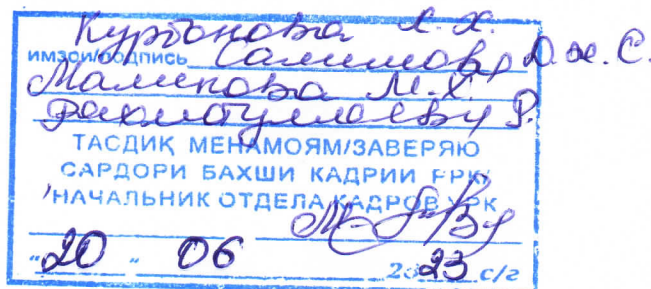 Курбонова Х. Х.
имзои/подпись Салимов Д. ж. С.
Маликова М. Х.
Рахматуллоеву Р.
ТАСДИҚ МЕНАМОЯМ/ЗАВЕРЯЮ
САРДОРИ БАХШИ КАДРИИ
НАЧАЛЬНИК ОТДЕЛА КАДРОВ
"20" 06 2023 с/г